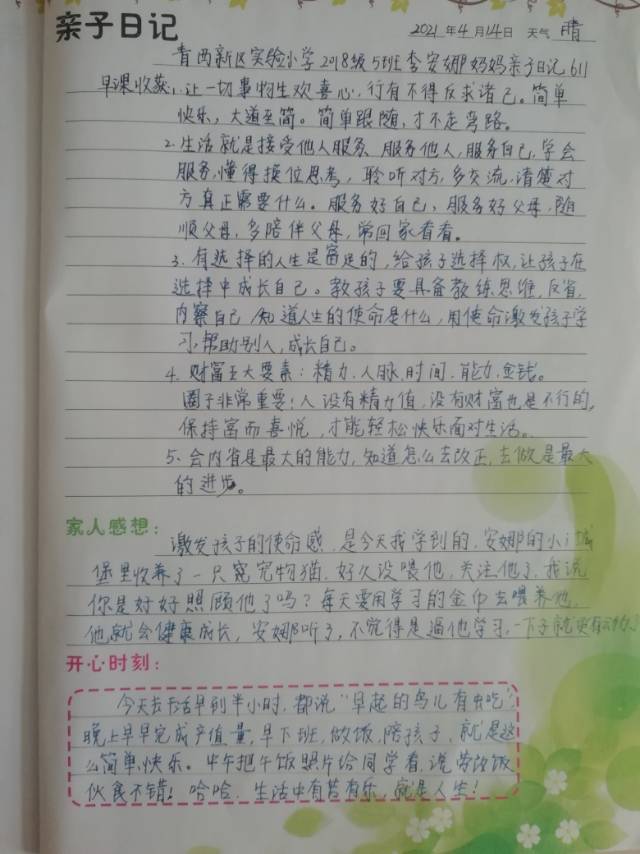 亲子日记
2021年4月14日 天气 晴
青西新区实验小学2018级5班李安娜妈妈亲子日记611
早课收获:让一切事物生欢喜心,行有不得反求诸己。简单
快乐,大道至简。简单跟随,才不走弯路。
2.生活就是接受他人服务、服务他人,服务自己,学会
服务,懂得换位思考,聆听对方,多交流,清楚对
方真正需要什么。服务好自己,服务好父母,随
顺父母,多陪伴父母,常回家看看。
3.有选择的人生是富足的,给孩子选择权,让孩子在
选择中成长自己。教孩子要具备教练思维,反省,
内察自己,知道人生的使命是什么,用使命激发孩子学
习,帮助别人,成长自己。
4.财富五大要素:精力.人脉.时间.能力.金钱。
圈子非常重要!人没有精力值,没有财富也是不行的,
保持富而喜悦,才能轻松快乐面对生活。
5.会内省是最大的能力,知道怎么去改正,去做是最大
的进步。
家人感想:
激发孩子的使命感,是今天我学到的,安娜的小城
堡里收养了一只宠物猫,好久没喂他,关注他了,我说
你是好好照顾他了吗?每天要用学习的金币去喂养他,
他就会健康成长,安娜听了,不觉得是逼他学习,一下子就更有动力了
开心时刻:
今天去书店早到半小时,都说“早起的鸟儿有虫吃”,
晚上早早完成产值量,早下班,做饭,陪孩子,就是这
么简单,快乐。中午把午饭照片给同学看,说劳改饭
伙食不错!哈哈.生活中有苦有乐,就是人生!